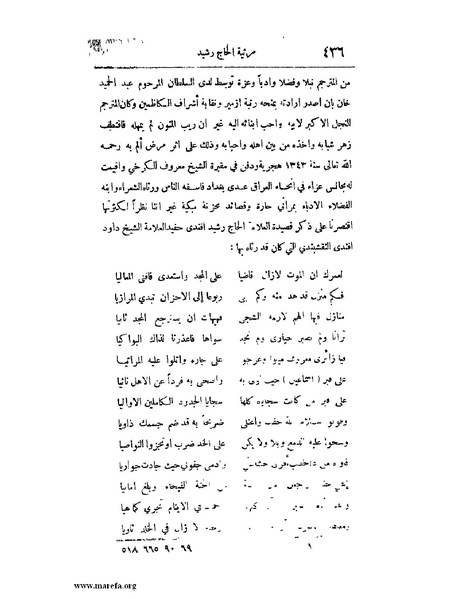 ٤٣٦
مرثية الحاج رشيد
من المترجم نبلا وفضلا وادباً وعزة توسط لدى السلطان المرحوم عبد الحميد
خان بان اصدر ارادته بمنحه رتبة ازمير ونقابة أشراف الكاظمين وكان المترجم
النجل الاكبر لابيه واحب ابنائه اليه غير ان ريب المنون لم يمهله فاقتطف
زهر شبابه واخذه من بين اهله واحبابه وذلك على اثر مرض ألم به رحمه
الله تعالى سنة ١٣٤٣ هجرية ودفن في مقبرة الشيخ معروف الكرخي واقيمت
له مجالس عزاء في انحاء العراق عدى بغداد فاسفه الناس ورثاه الشعراء وابنه
الفضلاء الادباء بمراثي حارة وقصائد محزنة مبكية غير اننا نظراً لكثرتها
اقتصرنا على ذكر قصيدة العلامة الحاج رشيد افندي حفيد العلامة الشيخ داود
افندي النقشبندي التي كان قد رثاه بها :
لعمرك ان الموت لازال قاضيا على المجد واستعدى فافنى المعاليا
فكم منزل قد هد منه وكم ربوعا إلى الاحزان تبدي المرازيا
منازل فيها الهم لازمه الشجى فهيهات ان يسترجع المجد ثانيا
سواها فاعذرنا لذاك البواكيا
فيا زائري معروف على جاره واتلوا عليه المراثيا
على قبر ( اسماعيل ) حيث به واضحى به فرداً عن الاهل نائيا
على قبر من كانت سجاياه كلها سجايا الجدود الكاملين الاواليا
ضريحاً به قد ضم جسمك ذاويا
وسحوا عليه الدمع وبلا ولا يكن على الخد ضرب
جفوني حيث جادت جواريا
الجنة وبلغ امانيا
الايتام تجري كما هيا
لا زال في الخلد ثاويا
٦٩ ٩٠ ٦٦٥ ٥١٨ ١
www.marefa.org